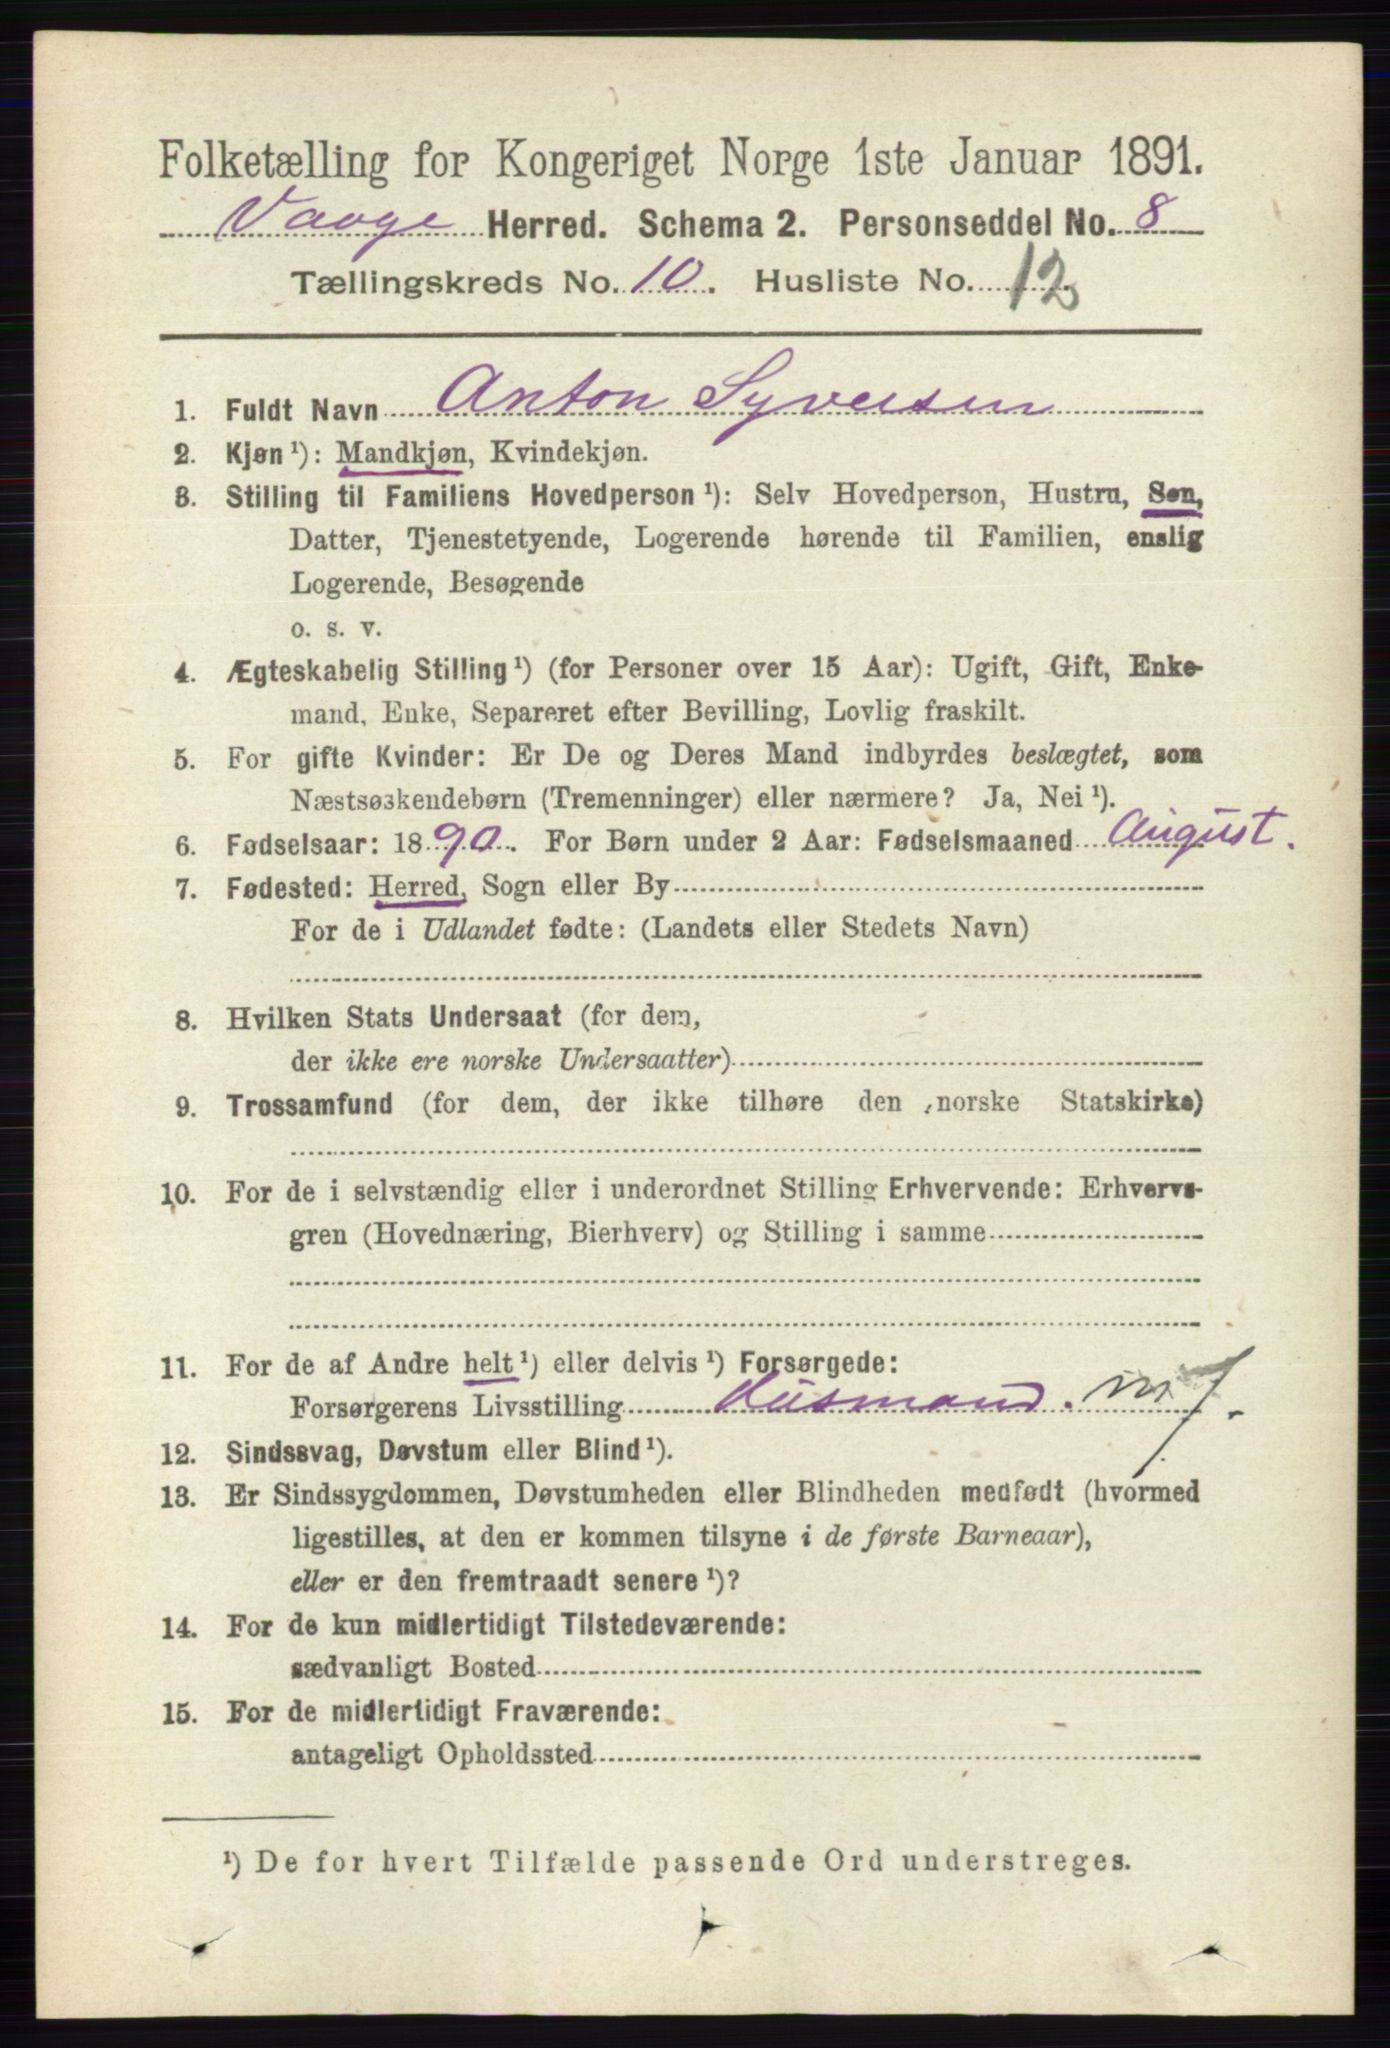 Folketælling for Kongeriget Norge 1ste Januar 1891.
Vaage Herred. Schema 2. Personseddel No. 8
Tællingskreds No. 10. Husliste No. 12
1. Fuldt Navn Anton Syversen
2. Kjøn ¹): Mandkjøn, Kvindekjøn.
3. Stilling til Familiens Hovedperson ¹): Selv Hovedperson, Hustru, Søn,
Datter, Tjenestetyende, Logerende hørende til Familien, enslig
Logerende, Besøgende
o. s. v.
4. Ægteskabelig Stilling ¹) (for Personer over 15 Aar): Ugift, Gift, Enke-
mand, Enke, Separeret efter Bevilling, Lovlig fraskilt.
5. For gifte Kvinder: Er De og Deres Mand indbyrdes beslægtet, som
Næstsøskendebørn (Tremenninger) eller nærmere? Ja, Nei ¹).
6. Fødselsaar: 1890. For Børn under 2 Aar: Fødselsmaaned August.
7. Fødested: Herred, Sogn eller By
For de i Udlandet fødte: (Landets eller Stedets Navn)
8. Hvilken Stats Undersaat (for dem,
der ikke ere norske Undersaatter)
9. Trossamfund (for dem, der ikke tilhøre den norske Statskirke)
10. For de i selvstændig eller i underordnet Stilling Erhvervende: Erhvervs-
gren (Hovednæring, Bierhverv) og Stilling i samme
11. For de af Andre helt ¹) eller delvis ¹) Forsørgede:
Forsørgerens Livsstilling Husmand. m/J.
12. Sindssvag, Døvstum eller Blind ¹).
13. Er Sindssygdommen, Døvstumheden eller Blindheden medfødt (hvormed
ligestilles, at den er kommen tilsyne i de første Barneaar),
eller er den fremtraadt senere ¹)?
14. For de kun midlertidigt Tilstedeværende:
sædvanligt Bosted
15. For de midlertidigt Fraværende:
antageligt Opholdssted
¹) De for hvert Tilfælde passende Ord understreges.